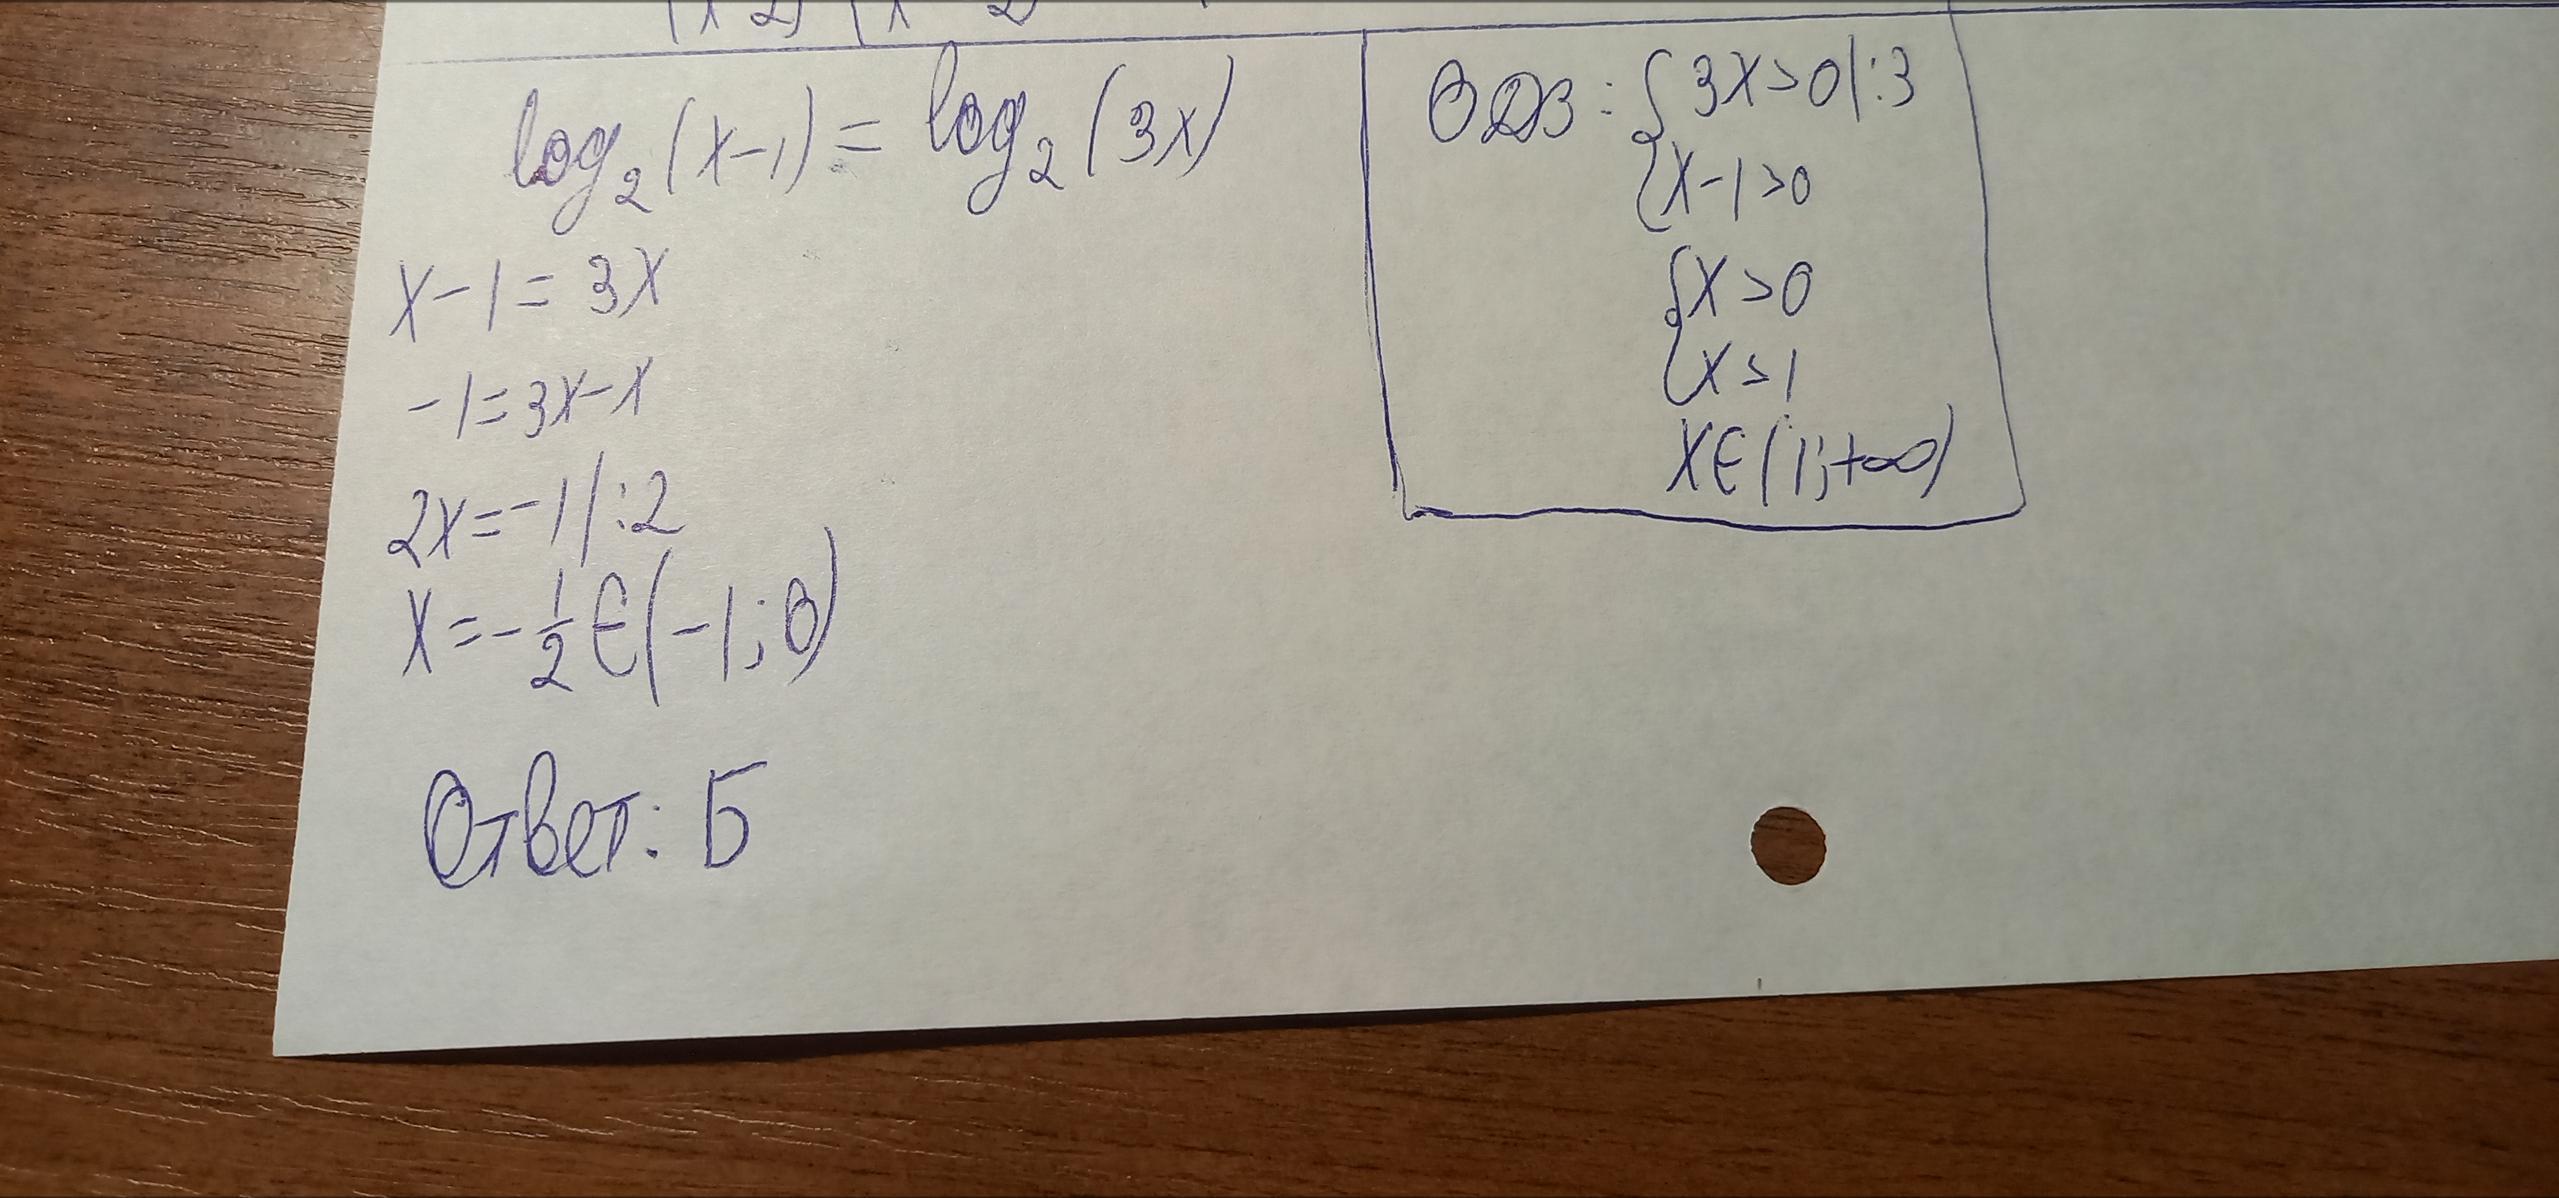 log₂(x-1) = log₂(3x)
x-1 = 3x
-1 = 3x-x
2x = -1 |:2
x = -1/2 ∈ (-1; 0)
Ответ: Б
ОДЗ: { 3x>0 |:3
{ x-1>0
{ x>0
{ x>1
x∈(1;+∞)